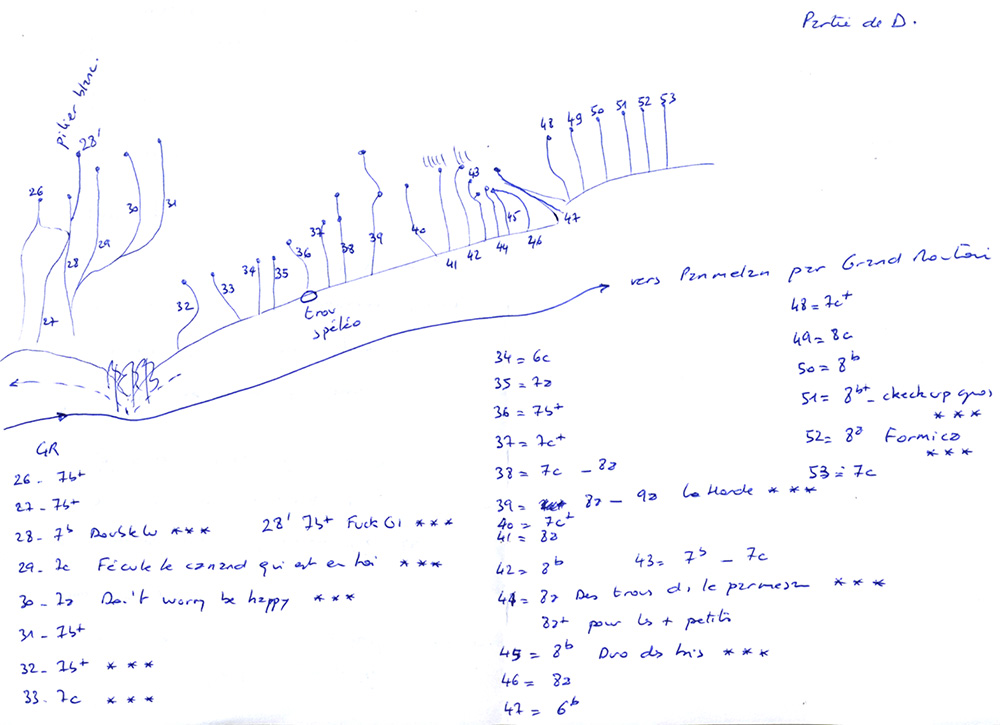 Partie de D.
pilier blanc.
28'
26
30
31
29
28
27
32
33
34
35
36
37
38
39
40
41
42
43
44
45
46
47
48
49
50
51
52
53
trou
spéléo
vers Parmelan par Grand Montoir
GR
26 - 7b+
27 - 7b+
28 - 7b Double W ***
28' 7b+ Fuck GI ***
29 - 7c Fécule le canard qui est en toi ***
30 - 7a Don't worry be happy ***
31 - 7b+
32 - 7b+ ***
33 - 7c ***
34 = 6c
35 = 7a
36 = 7b+
37 = 7c+
38 = 7c - 8a
39 = 8a - 9a La Horde ***
40 = 7c+
41 = 8a
42 = 8b
43 = 7b - 7c
44 = 8a Des trous ds le parmesan ***
8a+ pour les + petits
45 = 8b Duo des bris ***
46 = 8a
47 = 6b
48 = 7c+
49 = 8c
50 = 8b
51 = 8b+ - check up
***
52 = 8a Formica
***
53 = 7c